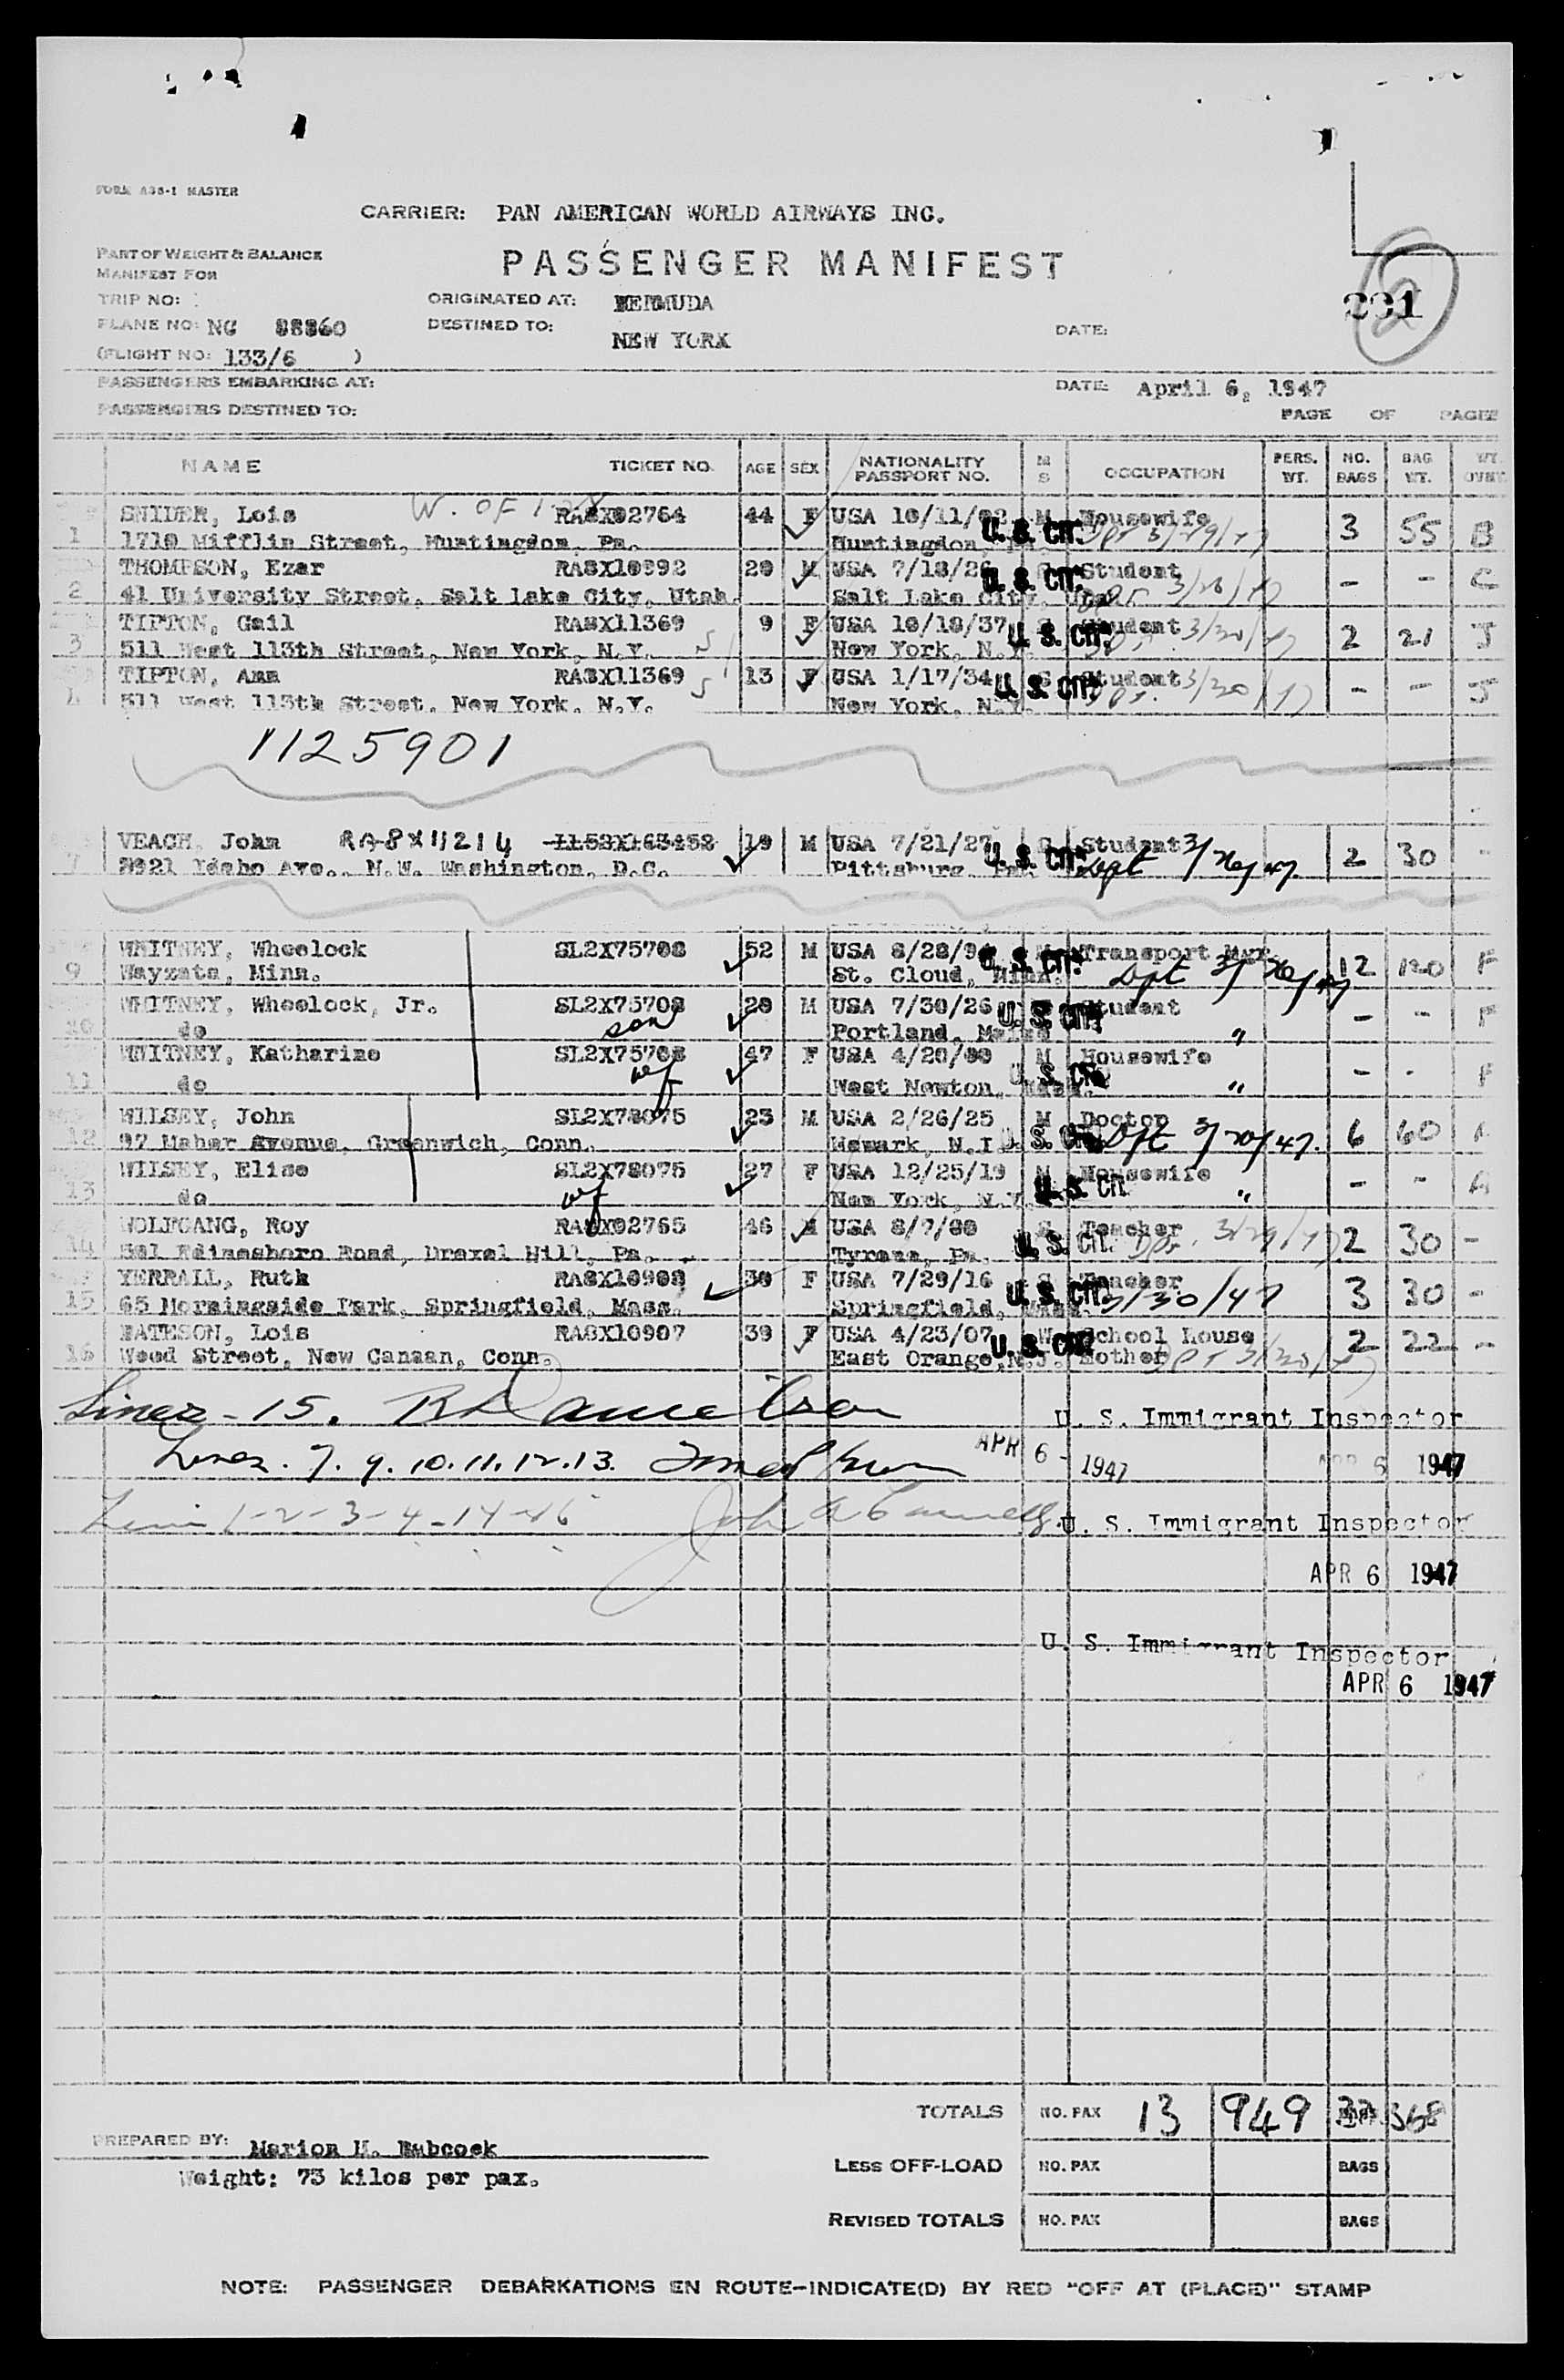 FORM A38-1 MASTER
CARRIER: PAN AMERICAN WORLD AIRWAYS INC.
PART OF WEIGHT & BALANCE
MANIFEST FOR
PASSENGER MANIFEST
TRIP NO:
ORIGINATED AT: BERMUDA
231
2
PLANE NO: NC 88860
DESTINED TO: NEW YORK
DATE:
(FLIGHT NO: 133/6 )
PASSENGERS EMBARKING AT:
DATE: April 6, 1947
PASSENGERS DESTINED TO:
PAGE OF PAGES
NAME TICKET NO. AGE SEX NATIONALITY PASSPORT NO. M S OCCUPATION PERS. WT. NO. BAGS BAG WT.
SNIDER, Lois W. OF RA8X02764 44 F USA 10/11/02 M Housewife 3/29/47 3 55 B
1 1710 Mifflin Street, Huntingdon, Pa. Huntingdon, U. S. CIT.
THOMPSON, Ezar RA8X10992 20 M USA 7/18/26 Student 3/28/47 - - C
2 41 University Street, Salt Lake City, Utah. Salt Lake City, U. S. CIT.
TIPTON, Gail RA8X11369 9 F USA 10/18/37 S Student 3/30/47 2 21 J
3 511 West 113th Street, New York, N.Y. New York, N.Y. U. S. CIT.
TIPTON, Ann RA8X11369 13 F USA 1/17/34 S Student 3/30/47 - - J
4 511 West 113th Street, New York, N.Y. New York, N.Y. U. S. CIT.
1125901
VEACH, John RA-8X11214 1152X163452 19 M USA 7/21/27 S Student 3/26/47 2 30 -
7 3921 Idaho Ave., N.W. Washington, D.C. Pittsburg, U. S. CIT. Dept
WHITNEY, Wheelock SL2X75708 52 M USA 8/28/94 Transport Mgr. 12 120 F
9 Wayzata, Minn. St. Cloud, Minn. U. S. CIT. Dpt 3/26/47
WHITNEY, Wheelock, Jr. SL2X75708 20 M USA 7/30/26 Student - - F
10 do son Portland, Maine U. S. CIT. "
WHITNEY, Katharine SL2X75708 47 F USA 4/20/00 M Housewife - - F
11 do wf West Newton, Mass. U. S. CIT. "
WILSEY, John SL2X78075 23 M USA 2/26/25 M Doctor 6 60
12 97 Maher Avenue, Greenwich, Conn. Newark, N.J. U. S. CIT. Dpt 3/20/47.
WILSEY, Elise SL2X78075 27 F USA 12/25/19 M Housewife - - A
13 do wf New York, N.Y. U. S. CIT. "
WOLFGANG, Roy RA8X02765 46 M USA 8/7/00 S Teacher 3/29/47 2 30 -
14 Road, Drexel Hill, Pa. Tyrone, Pa. U. S. CIT.
YERRALL, Ruth RA8X10908 30 F USA 7/29/16 S Teacher 3 30 -
15 65 Morningside Park, Springfield, Mass. Springfield, Mass. U. S. CIT. 3/30/47
BATESON, Lois RA8X10907 39 F USA 4/23/07 W School House 2 22 -
16 Weed Street, New Canaan, Conn. East Orange, N.J. U. S. CIT. Mother 3/30/47
Lines - 15. U. S. Immigrant Inspector
Lines. 7. 9. 10. 11. 12. 13. APR 6 - 1947 APR 6 1947
Lines 1-2-3-4-14-16 John A U. S. Immigrant Inspector
APR 6 1947
U. S. Immigrant Inspector
APR 6 1947
TOTALS NO. PAX 13 949 33 368
PREPARED BY: Marion M. Babcock
Weight: 73 kilos per pax.
LESS OFF-LOAD NO. PAX BAGS
REVISED TOTALS NO. PAX BAGS
NOTE: PASSENGER DEBARKATIONS EN ROUTE-INDICATE(D) BY RED "OFF AT (PLACE)" STAMP